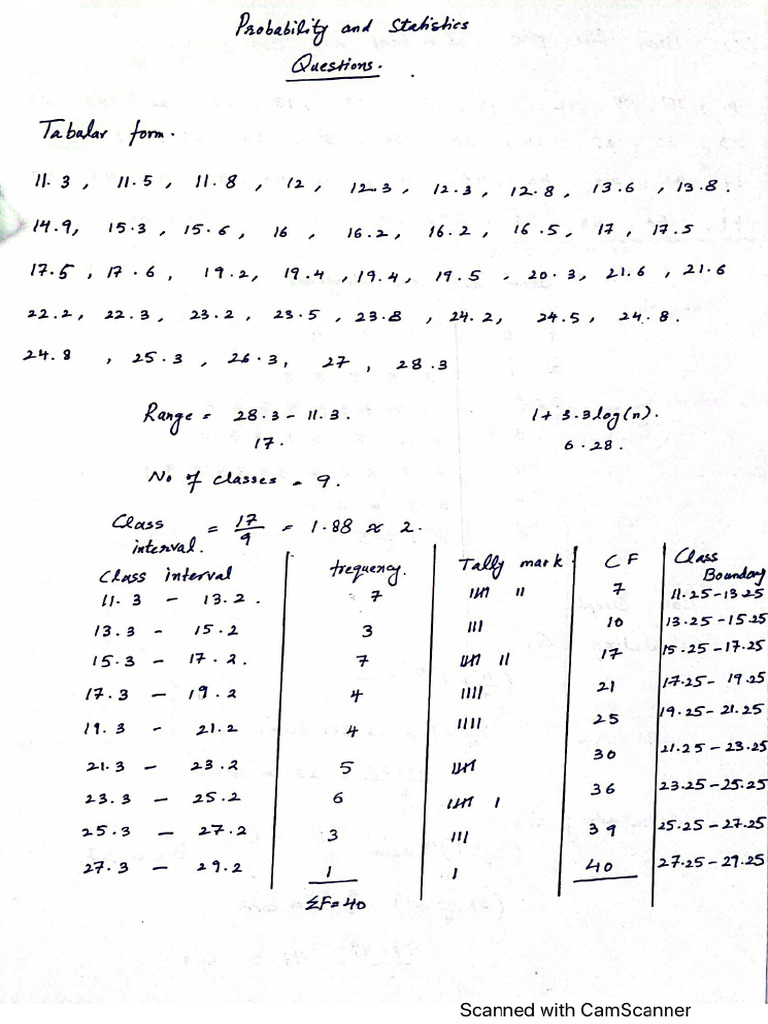 Probability and Statistics
Questions.
Tabular form.
11.3, 11.5, 11.8, 12, 12.3, 12.3, 12.8, 13.6, 13.8.
14.9, 15.3, 15.6, 16, 16.2, 16.2, 16.5, 17, 17.5
17.5, 17.6, 19.2, 19.4, 19.4, 19.5, 20.3, 21.6, 21.6
22.2, 22.3, 23.2, 23.5, 23.8, 24.2, 24.5, 24.8.
24.8, 25.3, 26.3, 27, 28.3
Range = 28.3 - 11.3. 1 + 3.3log(n).
17. 6.28.
No of classes = 9.
Class interval. = 17/9 = 1.88 ≈ 2.
Class interval frequency. Tally mark CF Class Boundary
11.3 - 13.2. 7 |||| || 7 11.25-13.25
13.3 - 15.2 3 ||| 10 13.25-15.25
15.3 - 17.2. 7 |||| || 17 15.25-17.25
17.3 - 19.2 4 |||| 21 17.25-19.25
19.3 - 21.2 4 |||| 25 19.25-21.25
21.3 - 23.2 5 |||| 30 21.25-23.25
23.3 - 25.2 6 |||| | 36 23.25-25.25
25.3 - 27.2 3 ||| 39 25.25-27.25
27.3 - 29.2 1 | 40 27.25-29.25
ΣF=40
Scanned with CamScanner